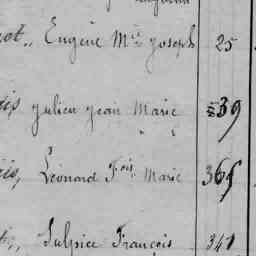 Eugène Mie Joseph 25
Julien Jean Marie 539
Léonard Fois Marie 365
Sulpice François 341